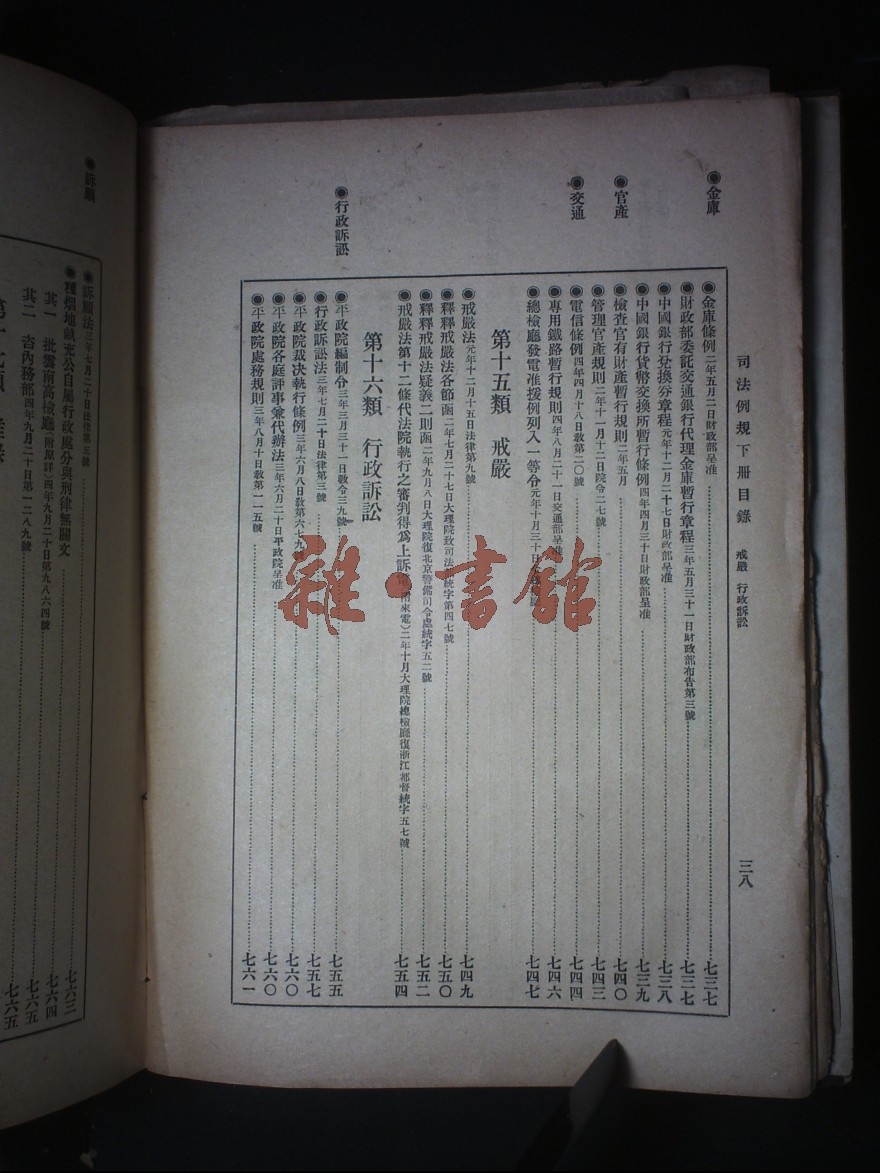 司法例規下冊目錄　戒嚴　行政訴訟
三八
◉金庫
◉金庫條例二年五月二日財政部呈准……七三七
◉財政部委託交通銀行代理金庫暫行章程三年五月三十一日財政部布告第三號……七三七
◉中國銀行兌換券章程元年十二月二十七日財政部呈准……七三八
◉中國銀行貨幣交換所暫行條例四年四月三十日財政部呈准……七三九
◉官產
◉檢查官有財產暫行規則二年五月……七四〇
◉管理官產規則二年十一月十二日院令二七號……七四三
◉交通
◉電信條例四年四月十八日敎第二〇號……七四四
◉專用鐵路暫行規則四年八月二十一日交通部呈准……七四六
◉總檢廳發電准援例列入一等令元年十月三十日……七四七
第十五類　戒嚴
◉戒嚴法元年十二月十五日法律第九號……七四九
◉釋釋戒嚴法各節函二年七月二十七日大理院致司法部統字第四七號……七五〇
◉釋釋戒嚴法疑義二則函二年九月八日大理院復北京警備司令處統字五二號……七五二
◉戒嚴法第十二條代法院執行之審判得爲上訴電(附來電)二年十月大理院總檢廳復浙江都督統字五七號……七五四
第十六類　行政訴訟
◉行政訴訟
◉平政院編制令三年三月三十一日敎令三九號……七五五
◉行政訴訟法三年七月二十日法律第三號……七五七
◉平政院裁決執行條例三年六月八日敎第六七號……七六〇
◉平政院各庭評事兼代辦法三年六月二十日平政院呈准……七六〇
◉平政院處務規則三年八月十日敎第一一五號……七六一
◉訴願
◉訴願法三年七月二十日法律第五號……七六三
◉種烟地畝充公自屬行政處分與刑律無關文
其一　批雲南高檢廳(附原詳)四年九月二十日第九八六四號……七六四
其二　咨內務部四年九月二十日第一二八九號……七六五
雜·書館